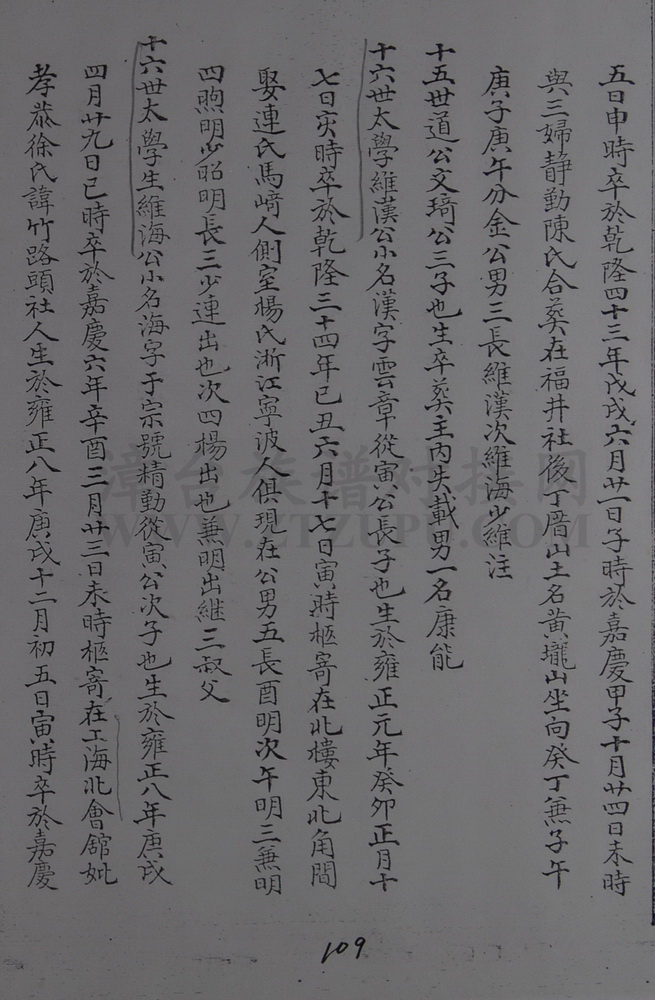 五日申時卒於乾隆四十三年戊戌六月廿一日子時於嘉慶甲子十月廿四日未時
與三婦靜勤陳氏合葬在福井社後丁厝山土名黄壠山坐向癸丁兼子午
庚子庚午分金公男三長維漢次維海少維注
十五世道公文琦公三子也生卒葬主內失載男一名康能
十六世太學維漢公小名漢字雲章從寅公長子也生於雍正元年癸卯正月十
七日亥時卒於乾隆三十四年己丑六月十七日寅時柩寄在北樓東北角間
娶連氏馬崎人側室楊氏浙江寧波人俱現在公男五長酉明次午明三兼明
四煦明少昭明長三少連出也次四楊出也兼明出継三叔父
十六世太學生維海公小名海字于宗號精勤從寅公次子也生於雍正八年庚戌
四月廿九日巳時卒於嘉慶六年辛酉三月廿三日未時柩寄在上海北會舘妣
孝恭徐氏諱竹路頭社人生於雍正八年庚戌十二月初五日寅時卒於嘉慶
漳台族谱对接网
WWW.ZTZUPU.COM
109